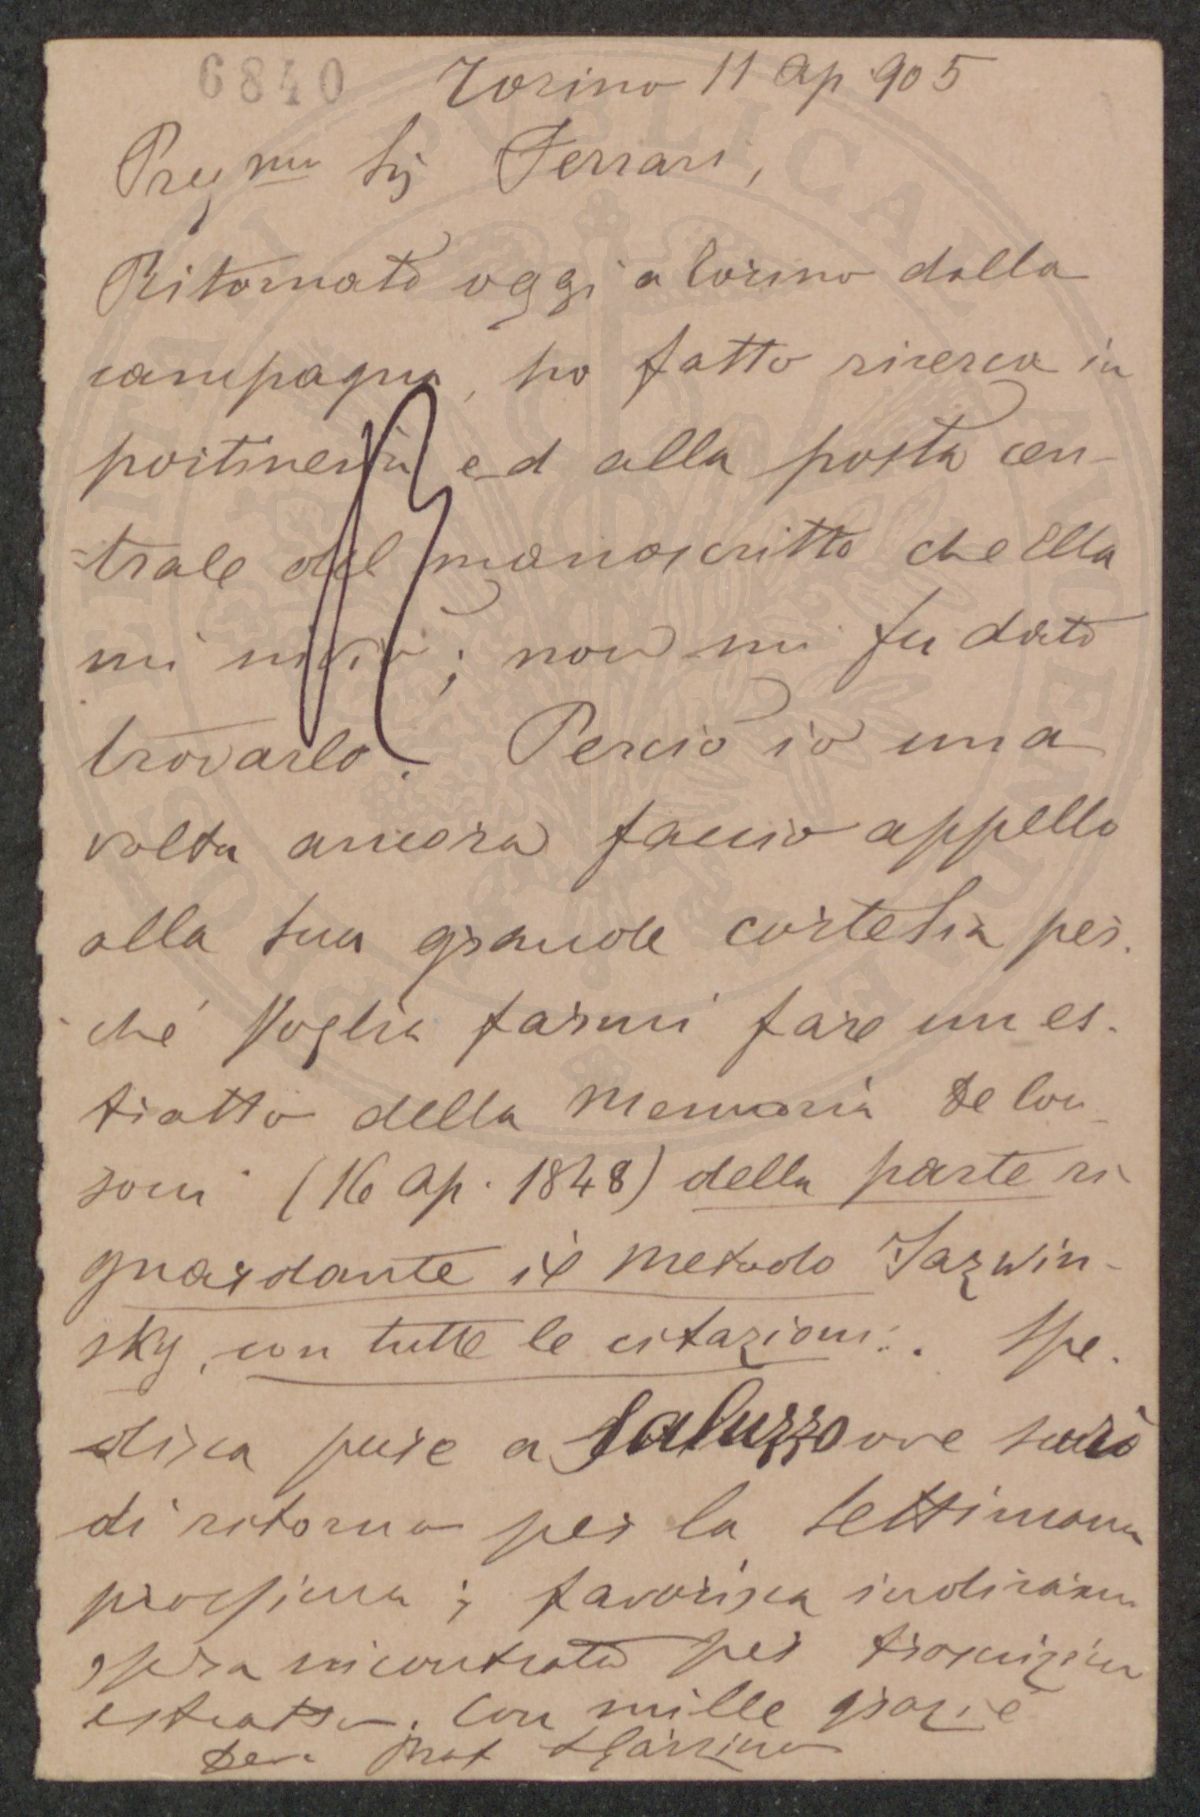 6840
Torino 11 Ap 905
Preg mo Sig Ferrari,
Ritornato oggi a Torino dalla
campagna, ho fatto ricerca in
portineria ed alla posta cen-
-trale del manoscritto che Ella
mi inviò; non mi fu dato
trovarlo. Perciò io una
volta ancora faccio appello
alla sua grande cortesia per.
ché voglia farmi fare un es.
tratto della memoria
(16 Ap. 1848) della parte ri
guardante il metodo Jazwin-
sky, con tutte le citazioni. Spe.
disca pure a Saluzzo ove sarò
di ritorno per la settimana
prossima; favorisca indicarmi
spesa incontrata per
estratto. Con mille grazie
Dev. Prof